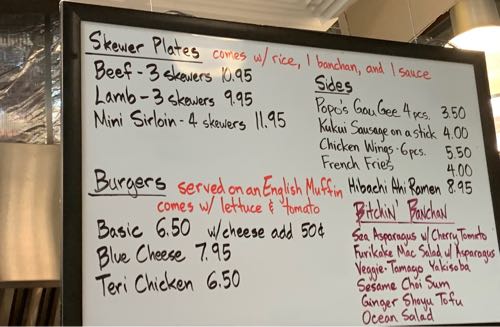 Skewer Plates comes w/ rice, 1 banchan, and 1 sauce
Beef - 3 skewers 10.95
Lamb - 3 skewers 9.95
Mini Sirloin - 4 skewers 11.95
Burgers served on an English Muffin
comes w/ lettuce & tomato
Basic 6.50 w/cheese add 50¢
Blue Cheese 7.95
Teri Chicken 6.50
Sides
Popo's Gau Gee 4 pcs. 3.50
Kukui Sausage on a stick 4.00
Chicken Wings - 6 pcs. 5.50
French Fries 4.00
Hibachi Ahi Ramen 8.95
Bitchin' Banchan
Sea Asparagus w/ Cherry Tomato
Furikake Mac Salad w/ Asparagus
Veggie-Tamago Yakisoba
Sesame Choi Sum
Ginger Shoyu Tofu
Ocean Salad